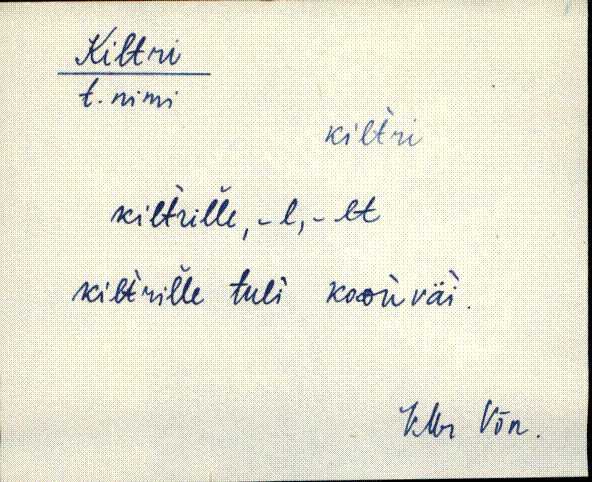 Kiltri
t. nimi
kilt̀ri
kilt̀rille, -l, -lt
kilt̀rille tuli kooǹ väì.
KMr Võn.